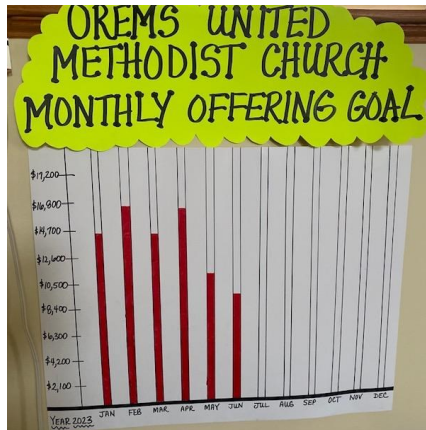 OREMS UNITED
METHODIST CHURCH
MONTHLY OFFERING GOAL
$19,200
$16,800
$14,700
$12,600
$10,500
$8,400
$6,300
$4,200
$2,100
YEAR 2023 JAN FEB MAR APR MAY JUN JUL AUG SEP OCT NOV DEC